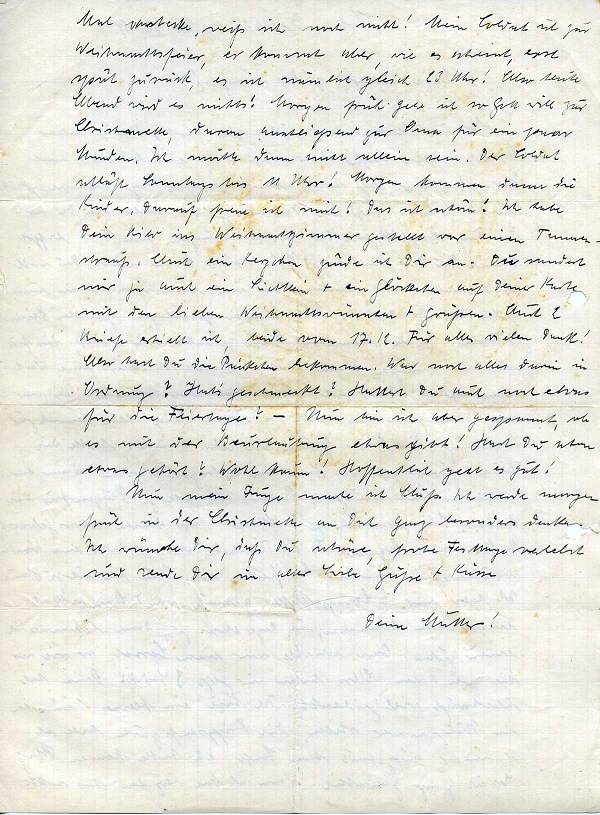 Mal verstecke, weiß ich noch nicht! Mein Soldat ist zur
Weihnachtsfeier, er kommt aber, wie es scheint, erst
spät zurück, es ist nämlich gleich 23 Uhr! Also heute
Abend wird es nichts! Morgen früh gehe ich so Gott will zur
Christmette, davon anschließend zur Oma für ein paar
Stunden. Ich möchte dann nicht allein sein. Der Soldat
schläft Sonntags bis 11 Uhr! Morgen kommen dann die
Kinder, darauf freue ich mich! Das ist schön! Ich habe
Dein Bild ins Weihnachtszimmer gestellt vor einen Tannen-
strauß. Auch ein Kerzchen zünde ich Dir an. Du sandtest
mir ja auch ein Lichtlein + ein Glöckchen auf Deiner Karte
mit den lieben Weihnachtswünschen + Grüßen. Auch 2
Briefe erhielt ich, beide vom 17.12. Für alles vielen Dank!
Aber hast Du die Päckchen bekommen. War noch alles darin in
Ordnung? Hat's geschmeckt? Hattest Du auch noch etwas
für die Feiertage? – Nun bin ich aber gespannt, ob
es mit der Beurlaubung etwas gibt! Hast Du schon
etwas gehört? Wohl kaum! Hoffentlich geht es gut!
Nun mein Junge mache ich Schluß. Ich werde morgen
früh in der Christmette an Dich ganz besonders denken.
Ich wünsche Dir, daß Du schöne, frohe Festtage verlebst
und sende Dir in aller Liebe Grüße + Küsse
Deine Mutter!